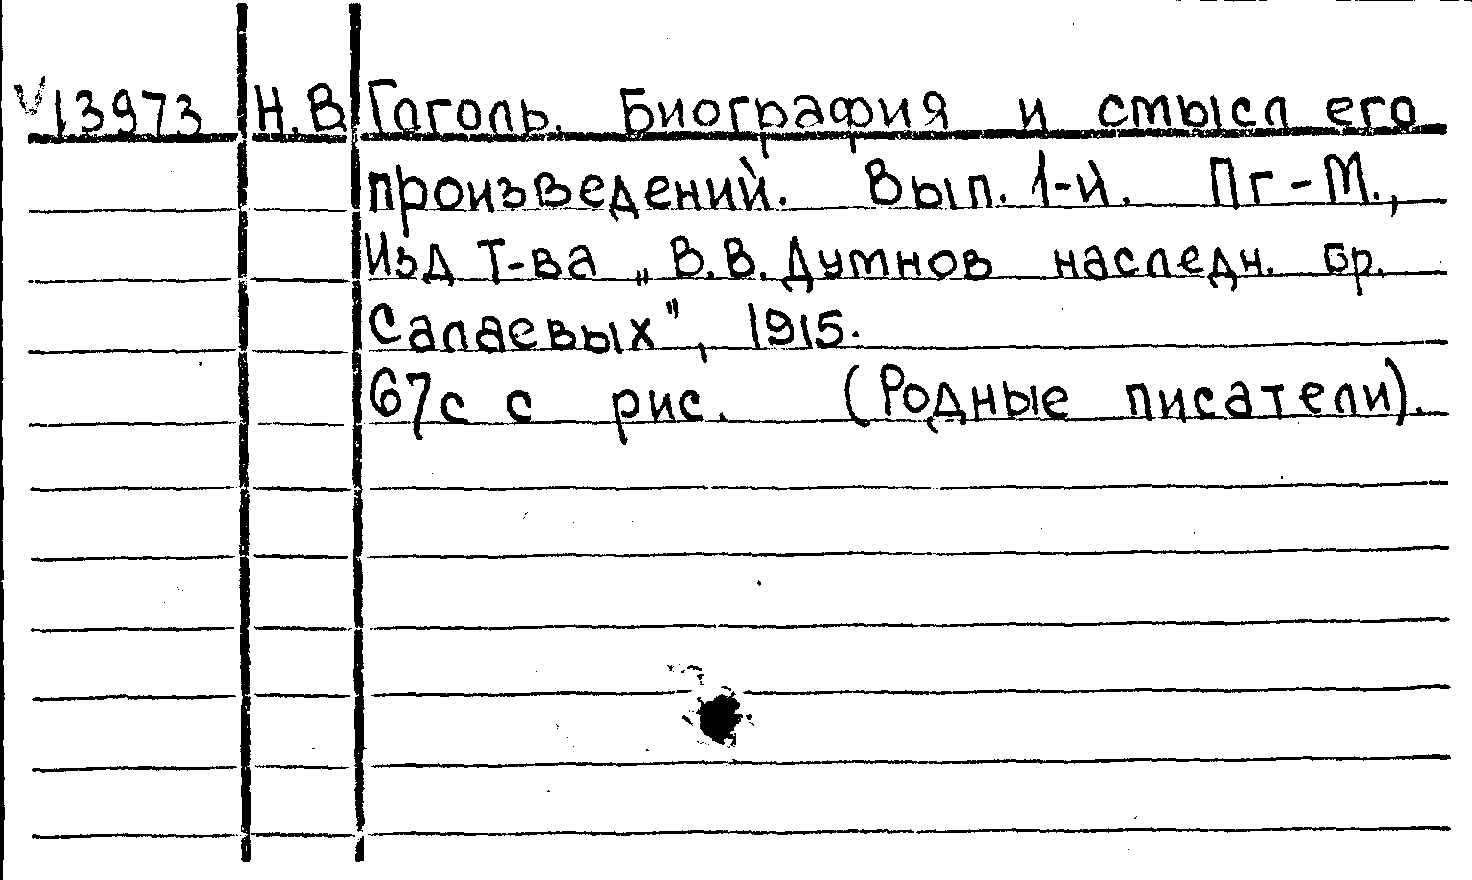 V13973 Н.В. Гоголь. Биография и смысл его
произведений. Вып. 1-й. Пг-М.,
Изд Т-ва „В.В. Думнов наследн. бр.
Салаевых", 1915.
67с с рис. (Родные писатели).